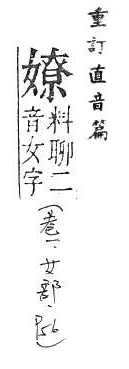 重訂直音篇
嫽
料聊二
音女字
(卷一·女部·P56)